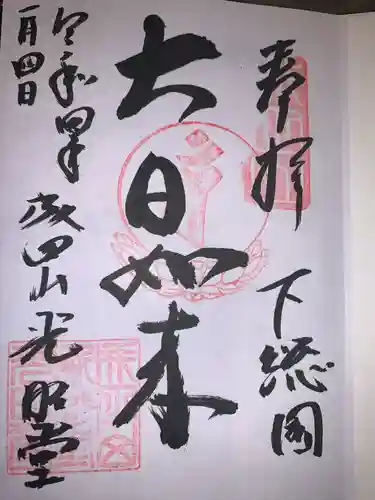 奉拝
下総國
大日如来
令和四年
一月四日
成田山光明堂